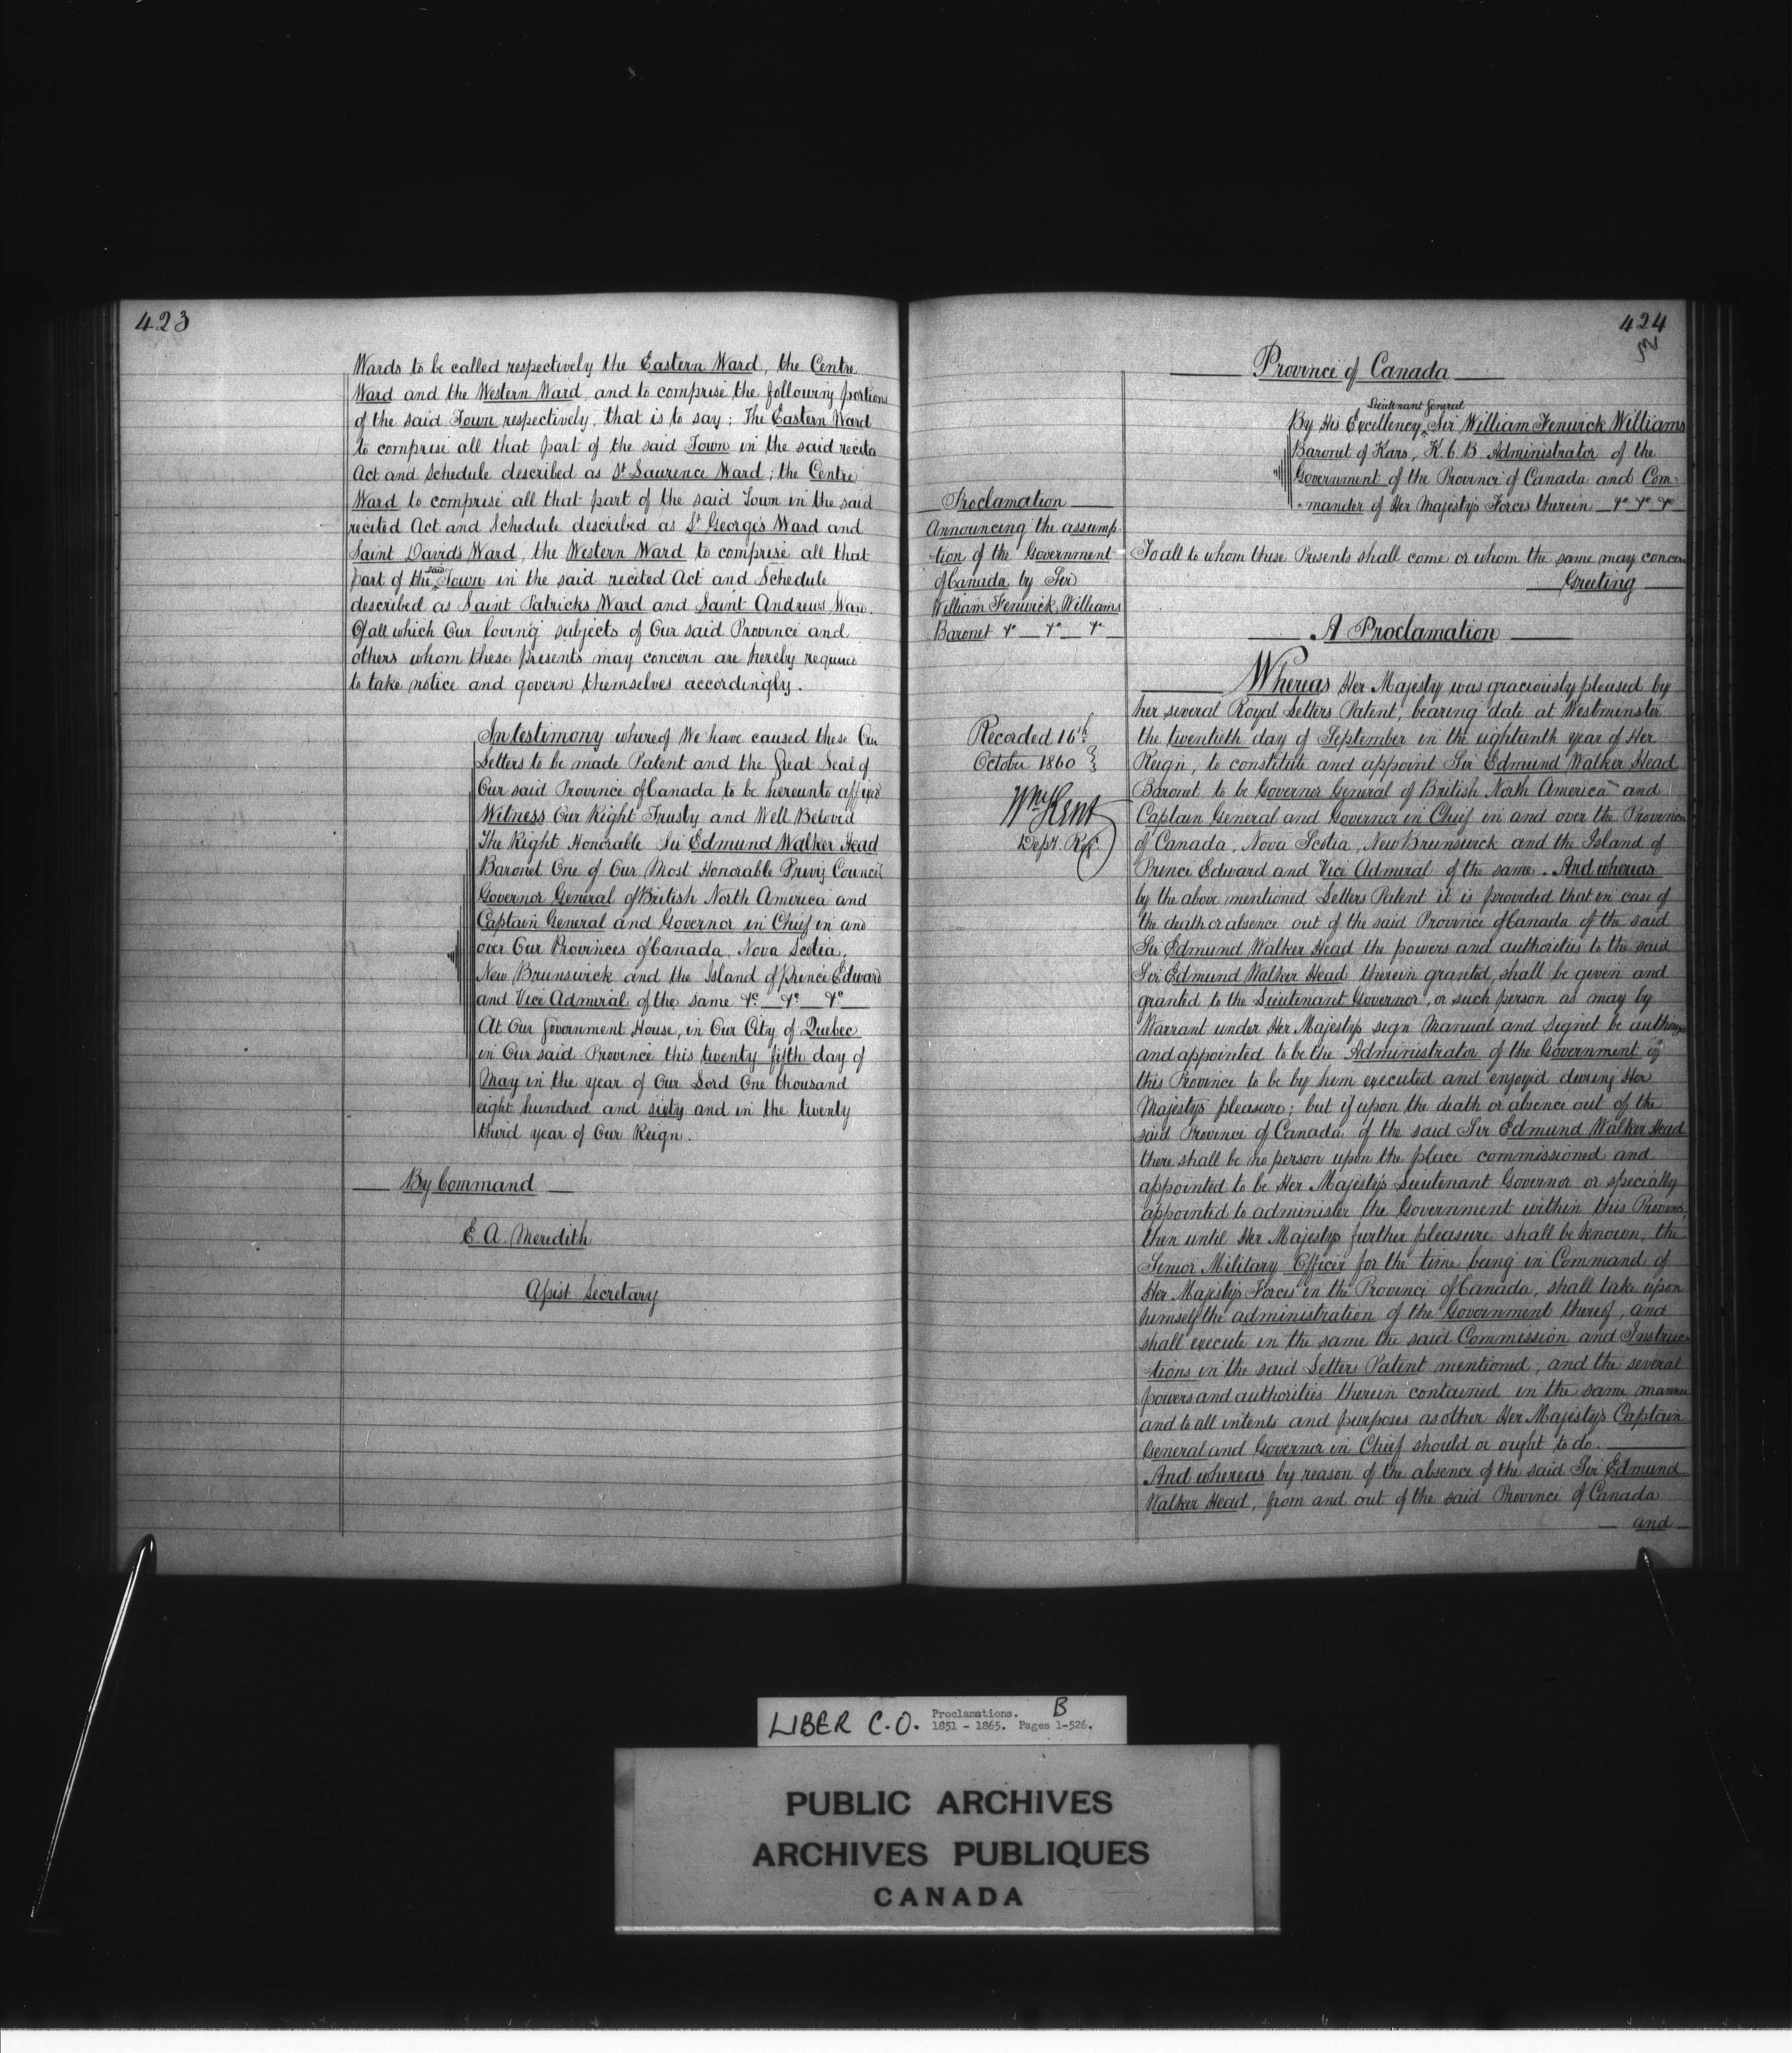 423
Wards to be called respectively the Eastern Ward, the Centre
Ward and the Western Ward, and to comprise the following portions
of the said Town respectively, that is to say; The Eastern Ward
to comprise all that part of the said Town in the said recite
Act and Schedule described as St Laurence Ward; the Centre
Ward to comprise all that part of the said Town in the said
recited Act and Schedule described as St George's Ward and
Saint Davids Ward, the Western Ward to comprise all that
part of the said Town in the said recited Act and Schedule
described as Saint Patricks Ward and Saint Andrews War.
Of all which Our loving subjects of Our said Province and
others whom these presents may concern are hereby required
to take notice and govern themselves accordingly.
In testimony whereof We have caused these Our
Letters to be made Patent and the Great Seal of
Our said Province of Canada to be hereunto affixed
Witness Our Right Trusty and Well Beloved
The Right Honorable Sir Edmund Walker Head
Baronet One of Our Most Honorable Privy Council
Governor General of British North America and
Captain General and Governor in Chief in and
over Our Provinces of Canada, Nova Scotia,
New Brunswick and the Island of Prince Edward
and Vice Admiral of the same &c &c &c
At Our Government House, in Our City of Quebec
in Our said Province this twenty fifth day of
May in the year of Our Lord One thousand
eight hundred and sixty and in the twenty
third year of Our Reign.
By Command
E. A. Meredith
Assist Secretary
424
Province of Canada
Lieutenant General
By His Excellency Sir William Fenwick Williams
Baronet of Kars, K.C.B. Administrator of the
Government of the Province of Canada and Com-
-mander of Her Majesty's Forces therein &c &c &c
Proclamation
Announcing the assump
-tion of the Government
of Canada by Sir
William Fenwick Williams
Baronet &c &c &c
Recorded 16th
October 1860
Wm Kent
Depy. Rg.
To all to whom these Presents shall come or whom the same may concern
Greeting
A Proclamation
Whereas Her Majesty was graciously pleased by
her several Royal Letters Patent, bearing date at Westminster
the twentieth day of September in the eighteenth year of Her
Reign, to constitute and appoint Sir Edmund Walker Head
Baronet, to be Governor General of British North America and
Captain General and Governor in Chief in and over the Provinces
of Canada, Nova Scotia, New Brunswick and the Island of
Prince Edward and Vice Admiral of the same. And whereas
by the above mentioned Letters Patent it is provided that in case of
the death or absence out of the said Province of Canada of the said
Sir Edmund Walker Head the powers and authorities to the said
Sir Edmund Walker Head therein granted, shall be given and
granted to the Lieutenant Governor, or such person as may by
Warrant under Her Majesty's sign Manual and Signet be authorized
and appointed to be the Administrator of the Government of
this Province to be by him executed and enjoyed during Her
Majesty's pleasure; but if upon the death or absence out of the
said Province of Canada of the said Sir Edmund Walker Head
there shall be no person upon the place commissioned and
appointed to be Her Majesty's Lieutenant Governor or specially
appointed to administer the Government within this Province,
then until Her Majesty's further pleasure shall be known, the
Senior Military Officer for the time being in Command of
Her Majesty's Forces in the Province of Canada, shall take upon
himself the administration of the Government thereof, and
shall execute in the same the said Commission and Instruc-
-tions in the said Letters Patent mentioned, and the several
powers and authorities therein contained in the same manner
and to all intents and purposes as other Her Majesty's Captain
General and Governor in Chief should or ought to do.
And whereas by reason of the absence of the said Sir Edmund
Walker Head, from and out of the said Province of Canada
and
LIBER C.O. Proclamations. B
1851 - 1865. Pages 1-526.
PUBLIC ARCHIVES
ARCHIVES PUBLIQUES
CANADA